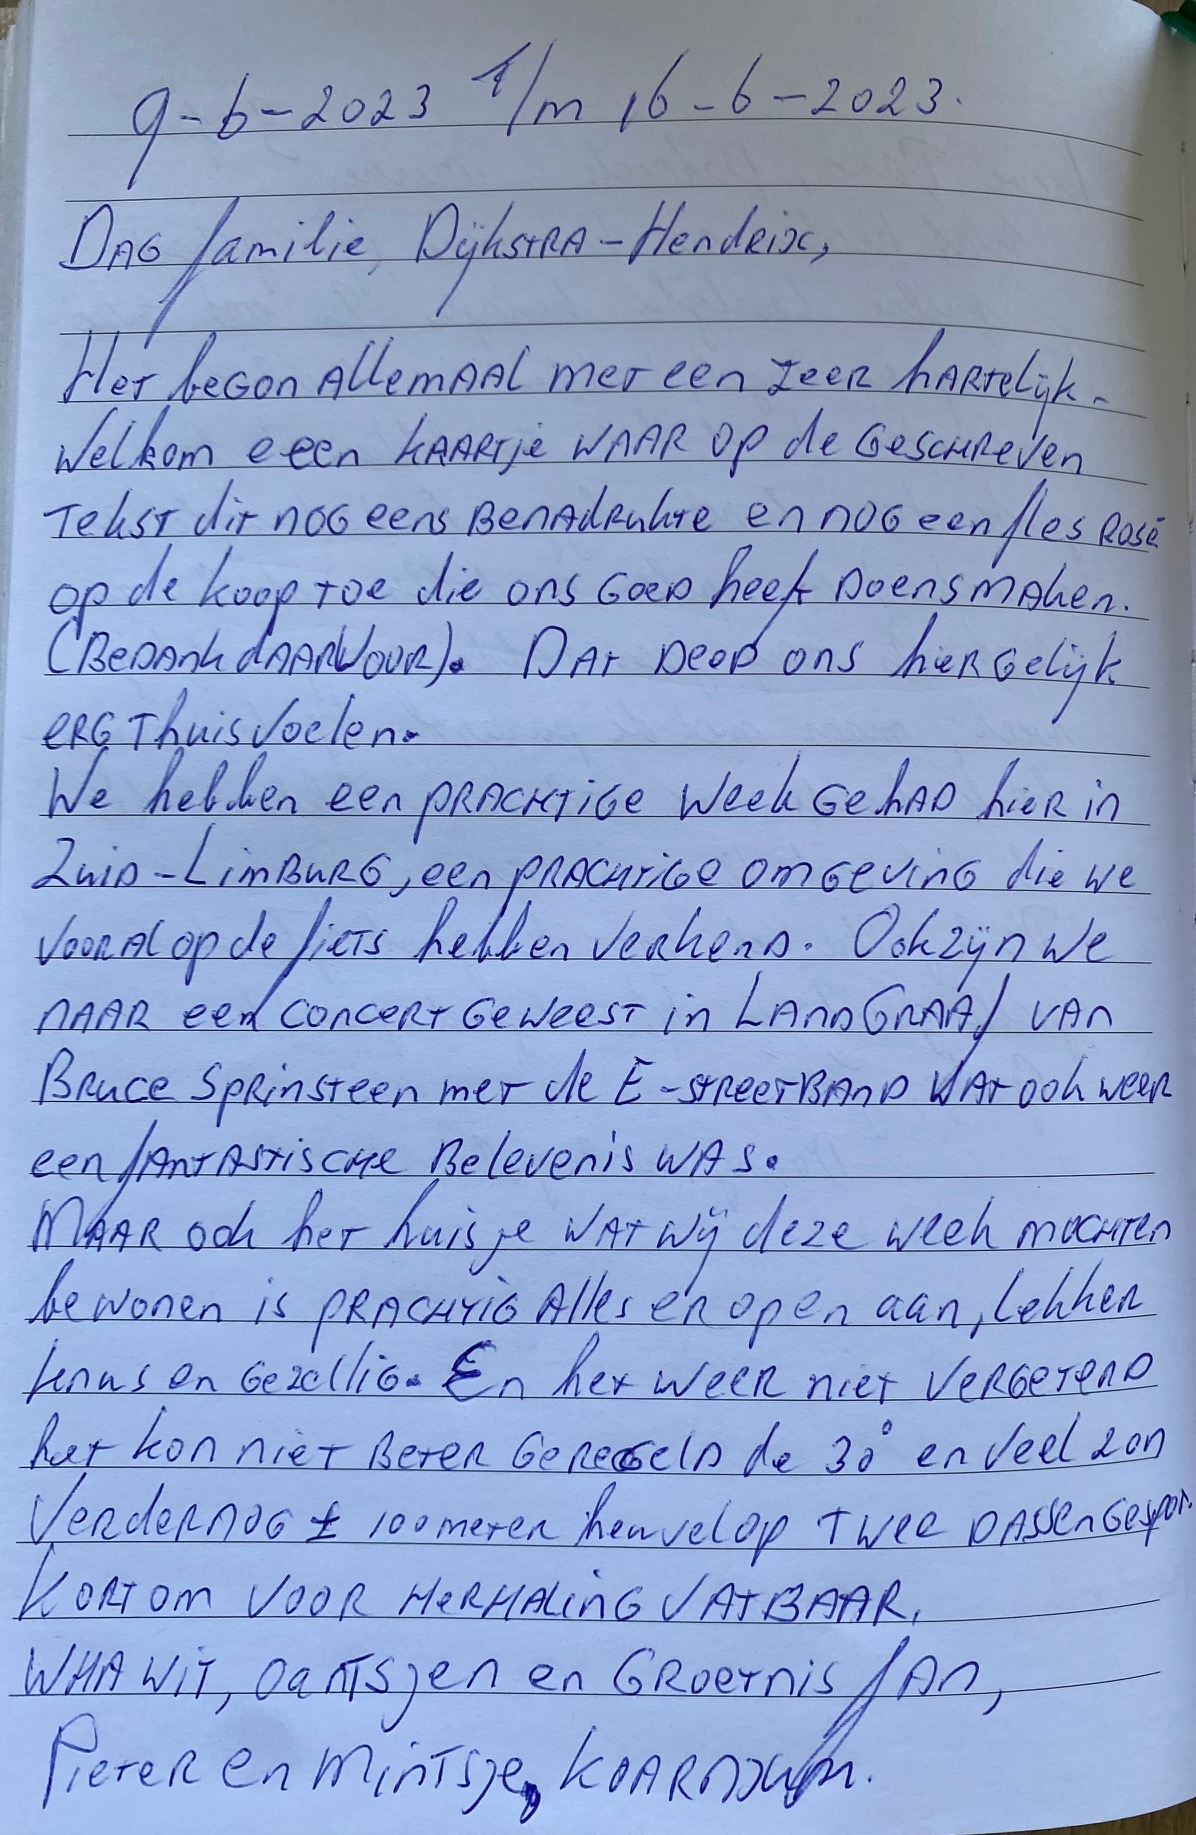 9-6-2023 t/m 16-6-2023.
DAG familie, Dijkstra-Hendrix,
Het begon Allemaal met een zeer hartelijk-
welkom e een kaartje waar op de geschreven
tekst dit nog eens benadrukte en nog een fles Rosé
op de koop toe die ons goed heeft doen smaken.
(Bedank daarvoor). Dat deed ons hier gelijk
erg thuis voelen.
We hebben een prachtige week gehad hier in
Zuid-Limburg, een prachtige omgeving die we
vooral op de fiets hebben verkend. Ook zijn we
naar een concert geweest in Landgraaf van
Bruce Sprinsteen met de E-streetband wat ook weer
een fantastische belevenis was.
Maar ook het huisje wat wij deze week mochten
bewonen is prachtig Alles er open aan, lekker
knus en gezellig. En het weer niet vergetend
het kon niet beter geregeld de 30° en veel zon
Verder nog ± 100 meter heuvel op twee dassen gespot.
Kortom voor herhaling vatbaar.
Wha wit, oantsjen en Groetnis fan,
Pieter en Mintsje, Koarnjum.